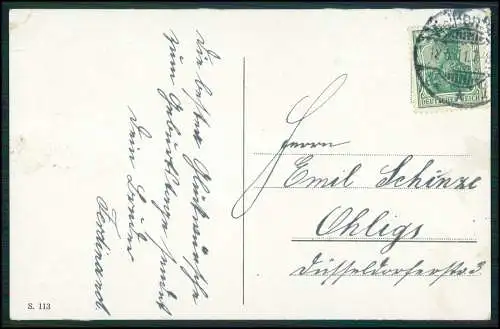 Die besten Glückwünsche
zum Geburtstage sendet
Dein Bruder
Ferdinand.
Herrn
Emil Schinze
Ohligs
Düsseldorferstr. 3
DEUTSCHES REICH
S. 113